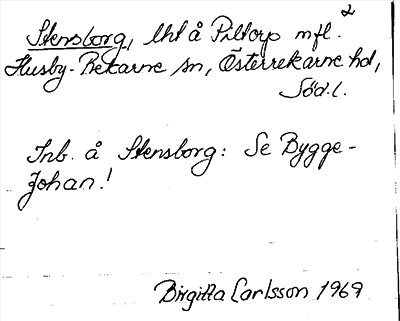 2
Stensborg, lht å Piltorp mfl.
Husby-Rekarne sn, Österrekarne hd,
Söd.l.
Inb. å Stensborg: Se Bygge-
Johan!
Birgitta Carlsson 1969